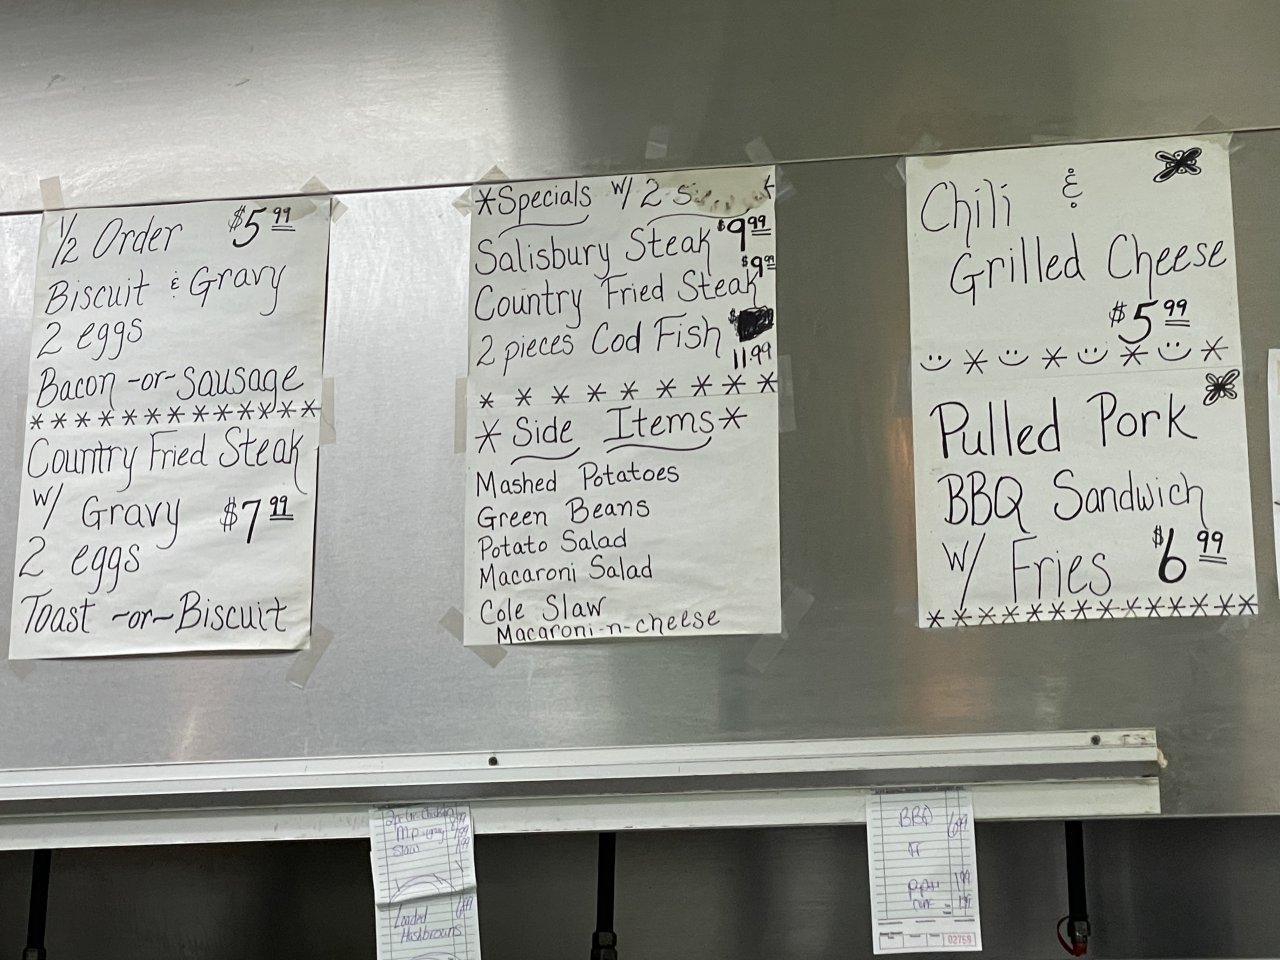 1/2 Order $5.99
Biscuit & Gravy
2 eggs
Bacon -or- Sausage
* * * * * * * * * * * * *
Country Fried Steak
w/ Gravy $7.99
2 eggs
Toast -or- Biscuit
*Specials w/ 2
Salisbury Steak $9.99
Country Fried Steak $9.99
2 pieces Cod Fish $
11.99
* * * * * * * * *
* Side Items *
Mashed Potatoes
Green Beans
Potato Salad
Macaroni Salad
Cole Slaw
Macaroni-n-cheese
Chili &
Grilled Cheese
$5.99
Pulled Pork
BBQ Sandwich
w/ Fries $6.99
* * * * * * * * * * * * *
Slaw
Loaded
Hashbrowns
BBQ 6.99
Fr
02759